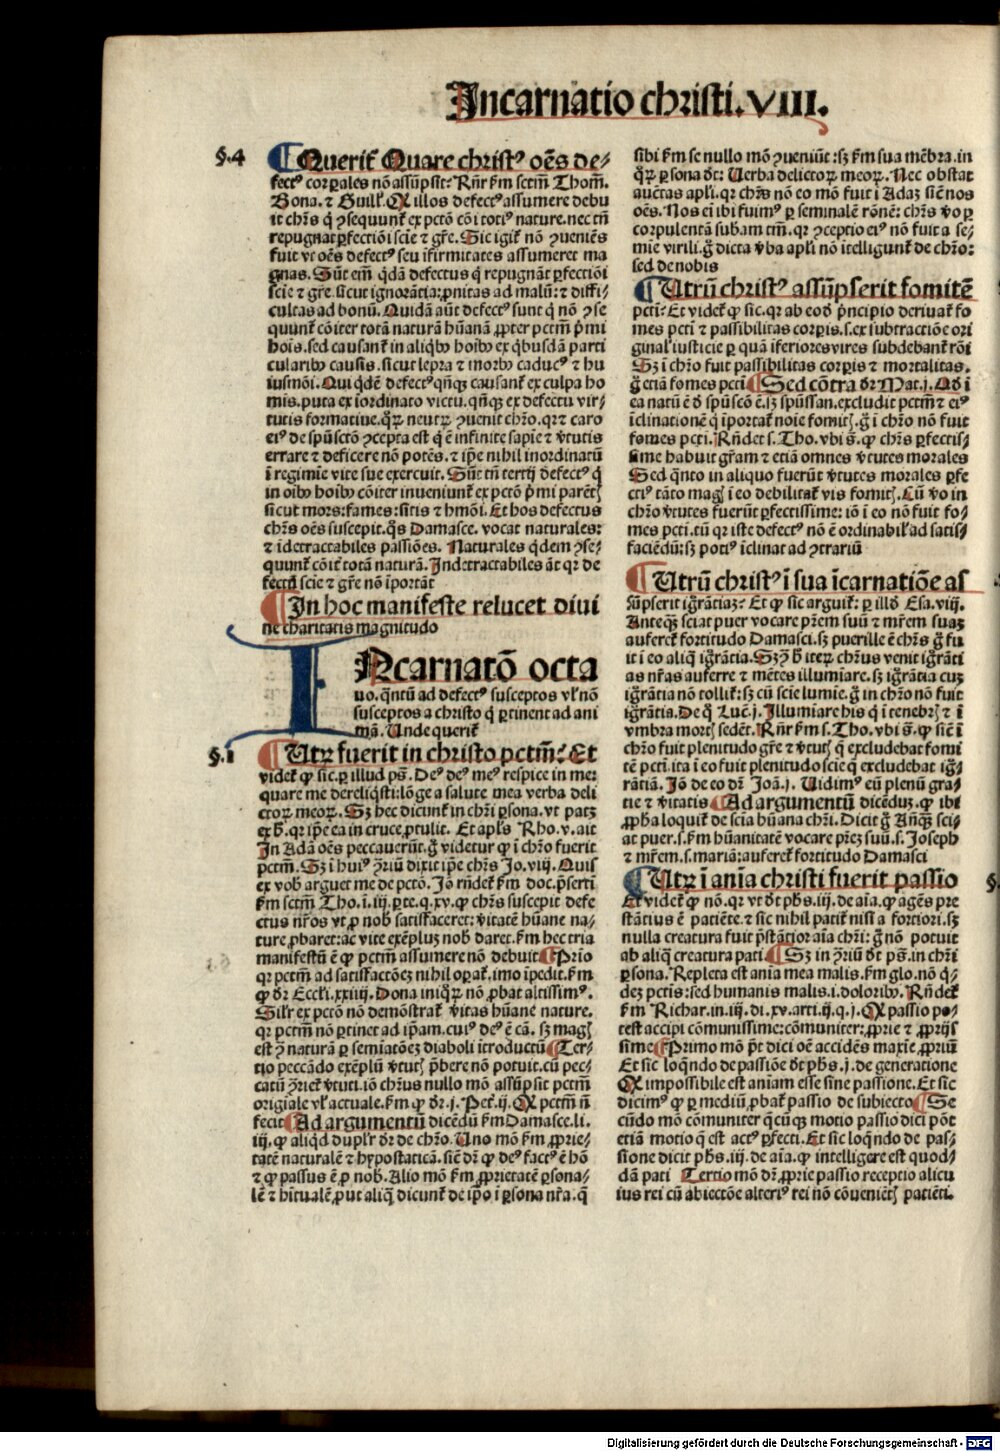 Incarnatio christi. VIII.
§.4
Querit̃ Quare christꝰ oẽs de-
fectꝰ corꝑales nõ assũpsit? Rñr ẜm sctm̃ Thom̃.
Bona. ⁊ Guill'. Qꝙ illos defectꝰ assumere debu
it chr̃s q̃ ꝯsequunt̃ ex pctõ cõi totiꝰ nature. nec tñ
repugnat ꝑfectiõi scie ⁊ gr̃e. Sic igit̃ nõ ꝯueniẽs
fuit vt oẽs defectꝰ seu ĩfirmitates assumeret ma
gnas. Sũt em̃ q̃dã defectus q̃ repugnãt ꝑfectiõi
scie ⁊ gr̃e. sicut ignorãtia: ꝓnitas ad malũ: ⁊ diffi-
cultas ad bonũ. Quidã aũt defectꝰ sunt q̃ nõ ꝯse
quunt̃ cõiter totã naturã hũanã ꝓpter pctm̃ p̃mi
hois. sed causant̃ in aliqbꝰ hoibꝰ ex qbusdã parti
cularibꝰ causis. sicut lepra ⁊ morbꝰ caducꝰ ⁊ hu
iusmõi. Qui q̃dẽ defectꝰ qñq̃ causant̃ ex culpa ho
mis. puta ex iordinato victu. qñq̃ ex defectu vir-
tutis formatiue. q̃ꝝ neutꝝ ꝯuenit chr̃o. qr ⁊ caro
eiꝰ de spũsctõ ꝯcepta est q̃ ẽ infinite sapiẽ ⁊ ṽtutis
errare ⁊ deficere nõ potẽs. ⁊ ip̃e nihil inordinatũ
ĩ regimĩe vite sue exercuit. Sũt tñ tertij defectꝰ q̃
in oibꝰ hoibꝰ cõiter inueniunt̃ ex pctõ p̃mi parẽtꝭ
sicut mors: fames: sitis ⁊ hmõi. Et hos defectus
chr̃s oẽs suscepit. q̃s Damasce. vocat naturales:
⁊ idetractabiles passiões. Naturales q̃dem ꝯse-
quunt̃ cõit̃ totã naturã. Indetractabiles ãt qr de
fectũ scie ⁊ gr̃e nõ ĩportãt
In hoc manifeste relucet diui
ne charitatis magnitudo
INcarnatõ octa
uo. q̃ntũ ad defectꝰ susceptos vl' nõ
susceptos a christo q̃ ꝑtinent ad ani
mã. Unde querit̃
§.1
Utꝝ fuerit in christo pctm̃? Et
videt̃ ꝙ sic. ꝑ illud ps̃. Deꝰ deꝰ meꝰ respice in me:
quare me dereliq̃sti: lõge a salute mea verba deli
ctoꝝ meoꝝ. Sꝫ hec dicunt̃ in chr̃i ꝑsona. vt patꝫ
ex b̃. qr ip̃e ea in cruce ꝓtulit. Et apl's Rho. v. ait
In Adã oẽs peccauerũt. g̃ videtur ꝙ ĩ chr̃o fuerit
pctm̃. Sꝫ ĩ huiꝰ ꝯ̃riũ dixit ip̃e chr̃s Jo. viij. Quis
ex vob̃ arguet me de pctõ. Jõ rñdet̃ ẜm doc. p̃serti
ẜm sctm̃ Tho. ĩ. iij. ꝑte. q. xv. ꝙ chr̃s suscepit defe
ctus nr̃os vt ꝓ nob̃ satisfaceret: ṽitatẽ hũane na-
ture ꝓbaret: ac vite exẽpluꝫ nob̃ daret. ẜm hec tria
manifestũ ẽ ꝙ pctm̃ assumere nõ debuit Prĩo
qr pctm̃ ad satisfactõeꝫ nihil oꝑat̃. imo ĩpedit. ẜm
ꝙ dr̃ Eccl'i. xxiiij. Dona iniq̃ꝝ nõ ꝓbat altissimꝰ.
Sil'r ex pctõ nõ demõstrat̃ ṽitas hũane nature.
qr pctm̃ nõ ꝑtinet ad ip̃am. cuiꝰ deꝰ ẽ cã. sꝫ magꝭ
est ꝯ̃ naturã ꝑ semĩatõeꝫ diaboli ĩtroductũ Ter-
tio peccãdo exẽplũ ṽtutꝭ p̃bere nõ potuit. cũ pec-
catũ ꝯ̃riet̃ ṽtuti. iõ chr̃us nullo mõ assũpsit pctm̃
origĩale vl' actuale. ẜm ꝙ dr̃. j. Pet̃. ij. Qꝙ pctm̃ ñ
fecit Ad argumentũ dicẽdũ ẜm Damasce. li.
iij. ꝙ aliq̃d dupl'r dr̃ de chr̃o. Uno mõ ẜm ꝓprie-
tatẽ naturalẽ ⁊ hypostaticã. sic̃ dr̃ ꝙ deꝰ factꝰ ẽ hõ
⁊ ꝙ passus ẽ ꝓ nob̃. Alio mõ ẜm ꝓprietatẽ ꝑsona-
lẽ ⁊ hĩtualẽ ꝓut aliq̃ dicunt̃ de ip̃o ĩ ꝑsona nr̃a. q̃
sibi ẜm se nullo mõ ꝯueniũt: sꝫ ẜm sua mẽbra. in
q̃ꝝ ꝑsona dr̃: Uerba delictoꝝ meoꝝ. Nec obstat
auct̃as apl'i. qr chr̃s nõ eo mõ fuit ĩ Adaꝫ sic̃ nos
oẽs. Nos ei ibi fuimꝰ ꝑ seminalẽ rõnẽ: chr̃s v̾o ꝑ
corpulentã subam tm̃. qr ꝯceptio eiꝰ nõ fuit a se-
mie virili. g̃ dicta v̾ba apl'i nõ ĩtelligunt̃ de chr̃o:
sed de nobis
Utrũ christꝰ assũpserit fomitẽ
pcti? Et videt̃ ꝙ sic. qr ab eod̃ p̃ncipio deriuat̃ fo
mes pcti ⁊ passibilitas corꝑis. s. ex subtractiõe ori
ginal' iusticie ꝑ quã iferiores vires subdebant̃ rõi
Sꝫ ĩ chr̃o fuit passibilitas corꝑis ⁊ mortalitas.
g̃ etiã fomes pcti Sed cõtra dr̃ Mat. j. Qd̃ ĩ
ea natũ ẽ d̃ spũscõ ẽ. sꝫ spũssan. excludit pctm̃ ⁊ eiꝰ
iclinationẽ q̃ iportat̃ noĩe fomitꝭ. g̃ ĩ chr̃o nõ fuit
fomes pcti. Rñdet s. Tho. vbi s̃. ꝙ chr̃s ꝑfectis-
sime habuit gr̃am ⁊ etiã omnes ṽtutes morales
Sed q̃nto in aliquo fuerũt ṽtutes morales ꝑfe
ctiꝰ tãto magꝭ ĩ eo debilitat̃ vis fomitꝭ. Cũ v̾o in
chr̃o ṽtutes fuerũt ꝑfectissime: iõ ĩ eo nõ fuit fo-
mes pcti. tũ qr iste defectꝰ nõ ẽ ordinabil' ad satis-
faciẽdũ: sꝫ potiꝰ ĩclinat ad ꝯtrariũ
Utrũ christꝰ ĩ sua ĩcarnatiõe as
sũpserit igr̃ãtiaꝫ? Et ꝙ sic arguit̃: ꝑ illd̃ Esa. viij.
Anteq̃ꝫ sciat puer vocare pr̃em suũ ⁊ mr̃em suaꝫ
auferet̃ fortitudo Damasci. sꝫ puerille ẽ chr̃s g̃ fu
it ĩ eo aliq̃ igr̃ãtia. Sꝫ ꝯ̃ b̃ iteꝝ chr̃us venit igr̃ãti
as nr̃as auferre ⁊ mẽtes illumĩare. sꝫ igr̃ãtia cuꝫ
igr̃ãtia nõ tollit̃: sꝫ cũ scie lumĩe. g̃ in chr̃o nõ fuit
igr̃ãtis. De q̃ Luc̃. j. Illumĩare his q̃ ĩ tenebrꝭ ⁊ ĩ
vmbra mortꝭ sedẽt. Rñr̃ ẜm s. Tho. vbi s̃. ꝙ sic̃ ĩ
chr̃o fuit plenitudo gr̃e ⁊ ṽtutꝭ q̃ excludebat fomi
tẽ pcti. ita ĩ eo fuit plenitudo scie q̃ excludebat ig̃-
rãtiã. Jõ de eo dr̃ Joã. j. Uidimꝰ eũ plenũ gra-
tie ⁊ ṽitatis Ad argumentũ dicẽduꝫ. ꝙ ibi
ꝓpha loquit̃ de sciã hũana chr̃i. Dicit g̃ Añq̃ꝫ sci-
at puer. s. ẜm hũanitatẽ vocare pr̃eꝫ suũ. s. Joseph
⁊ mr̃em. s. mariã: auferet̃ fortitudo Damasci
Utꝝ ĩ anĩa christi fuerit passio
Et videt̃ ꝙ nõ. qr vt dr̃ phs̃. iij. de aĩa. ꝙ agẽs pre
stãtius ẽ patiẽte. ⁊ sic nihil patit̃ nisi a fortiori. sꝫ
nulla creatura fuit p̃stãtior aĩa chr̃i: g̃ nõ potuit
ab aliq̃ creatura pati. Sꝫ in ꝯ̃riũ dr̃ ps̃. in chr̃i
ꝑsona. Repleta est anĩa mea malis. ẜm glo. nõ q̃-
deꝫ pctis: sed humanis malis. i. doloribꝰ. Rñdet̃
ẜm Richar. in. iij. di. xv. arti. ij. q. j. Qꝙ passio po-
test accipi cõmunissime: cõmuniter: ꝓprie ⁊ ꝓprijs
sime Primo mõ p̃t dici oẽ accidẽs maxĩe ꝓpriũ
Et sic loq̃ndo de passiõe dr̃ phs̃. j. de generatione
Qꝙ impossibile est aniam esse sine passione. Et sic
dicimꝰ ꝙ ꝑ mediũ ꝓbat̃ passio de subiecto Se
cũdo mõ cõmuniter q̃cũqꝫ motio passio dici põt
etiã motio q̃ est actꝰ ꝑfecti. Et sic loq̃ndo de pas-
sione dicit phs̃. iij. de aĩa. ꝙ intelligere est quod-
dã pati Tertio mõ dr̃ ꝓprie passio receptio alicu
ius rei cũ abiectõe alteriꝰ rei nõ cõuenietꝭ patiẽti.
Digitalisierung gefördert durch die Deutsche Forschungsgemeinschaft - DFG